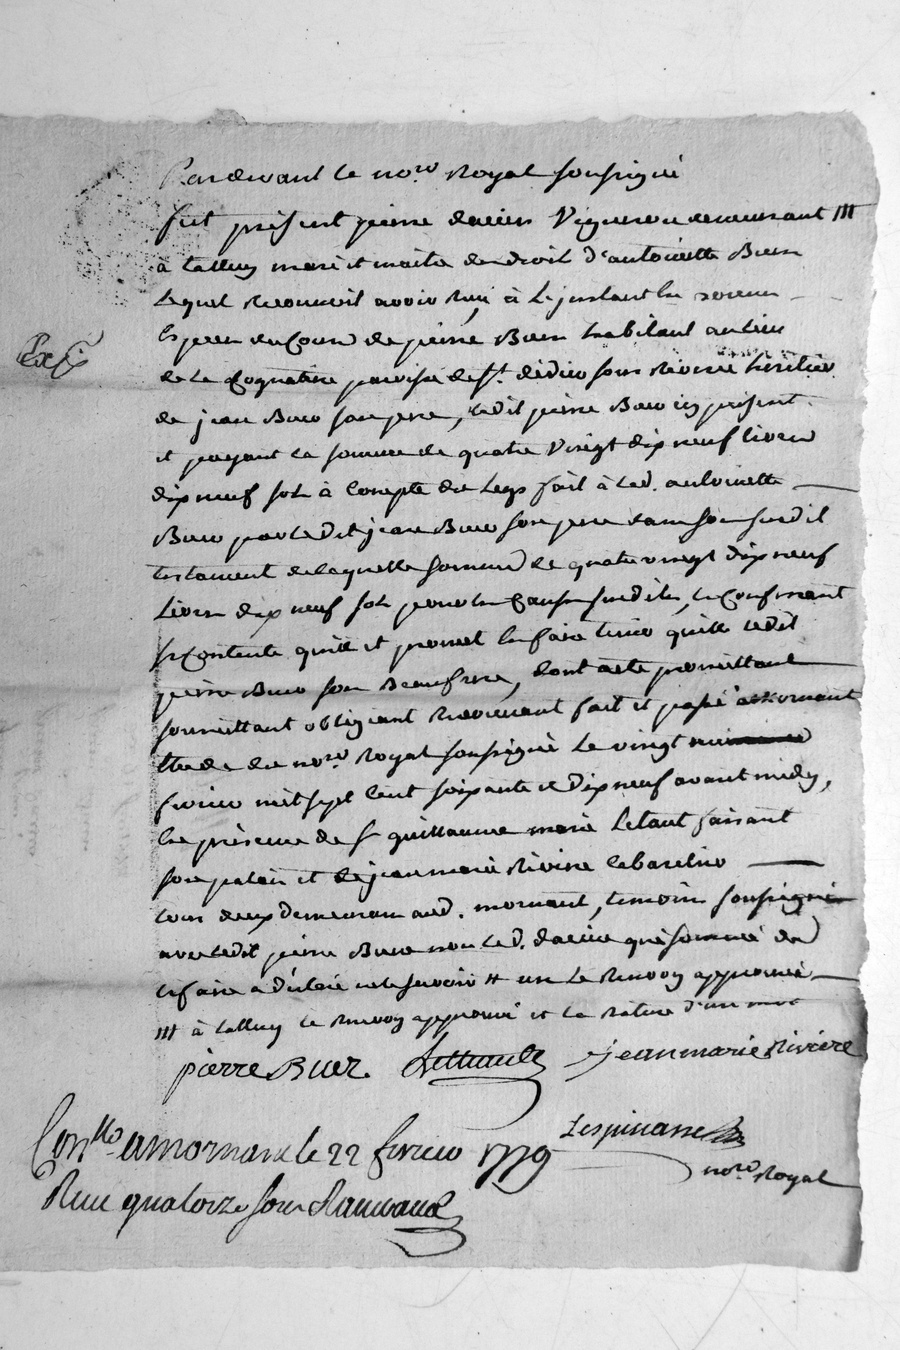 Pardevant le nore. Royal soussigné
fut présent pierre dacieu Vigneron demeurant #
à talluy mari et maitre des droit d'antoinette Buer
Lequel Reconnoit avoir Reçu à L'instant en
Especes du Cour de pierre Buer habitant au lieu
de la paroisse de St. didier sous Riverie héritier
de jean Buer son pere, ledit pierre Buer icy présent
et payant la somme de quatre Vingt dix neuf livres
dix neuf sols à Compte du Legs fait à lad. antoinette
Buer par ledit jean Buer son pere dans son susdit
testament de laquelle somme de quatre vingt dix neuf
Livres dix neuf sols pour les Causes susdites, le Confessant
se Contente quitte et promet en faire tenir quitte ledit
pierre Buer son Beaufrere, dont acte promettant
soumettant obligeant Renonceant fait et passé à mornant
Etude du nore. Royal soussigné Le vingt
fevrier mil sept Cent soixante et Dix neuf avant midy,
En présence de Sr guillaume marie Letant faisant
son palais et de jean marie Riviere Cabaretier
tous deux demeurans aud. mornant, temoins soussignés
avec ledit pierre Buer non led. dacieu qui sommé de
Le faire a déclaré ne le savoir # un Le Renvoy approuvé
# à talluy le Renvoy approuvé et la Rature d'un mot
pierre Buer. jean marie Rivière
Lespinasse
nore. Royal
Conlle. a mornant le 22 fevrier 1779
Reçu quatorze sous